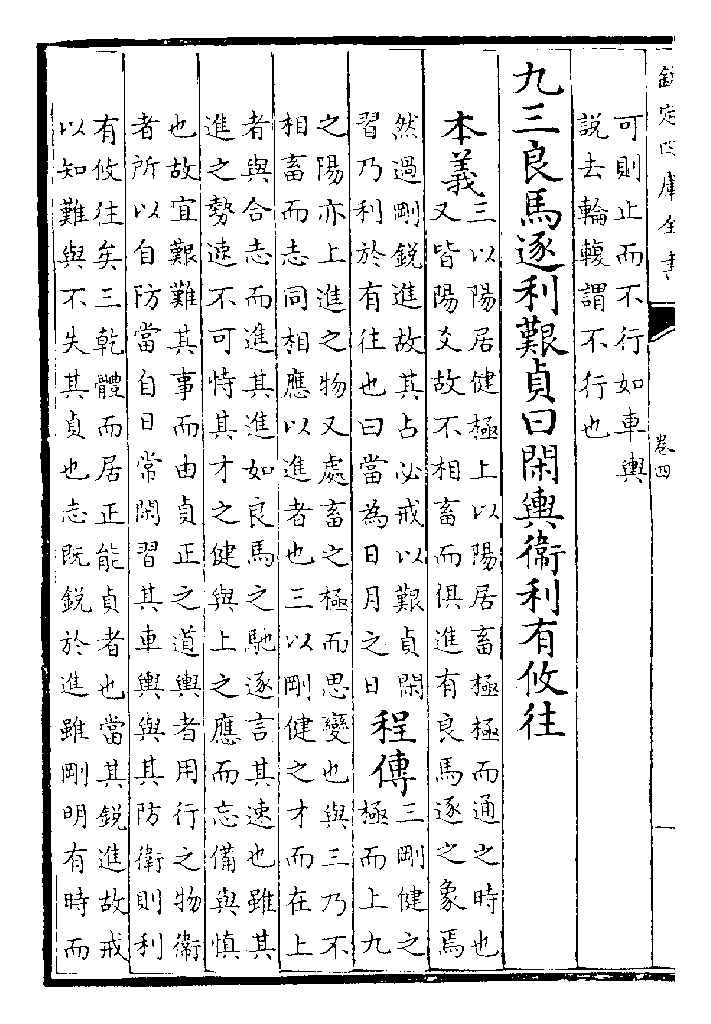 欽定四庫全書
卷四
可則止而不行如車輿
説去輪輹謂不行也
九三良馬逐利艱貞曰閑輿衛利有攸往
本義
三以陽居健極上以陽居畜極極而通之時也
又皆陽爻故不相畜而俱進有良馬逐之象焉
然過剛鋭進故其占必戒以艱貞閑
習乃利於有往也曰當為日月之日
程傳
三剛健之
極而上九
之陽亦上進之物又處畜之極而思變也與三乃不
相畜而志同相應以進者也三以剛健之才而在上
者與合志而進其進如良馬之馳逐言其速也雖其
進之勢速不可恃其才之健與上之應而忘備與慎
也故宜艱難其事而由貞正之道輿者用行之物衛
者所以自防當自日常閑習其車輿與其防衛則利
有攸往矣三乾體而居正能貞者也當其鋭進故戒
以知難與不失其貞也志既鋭於進雖剛明有時而